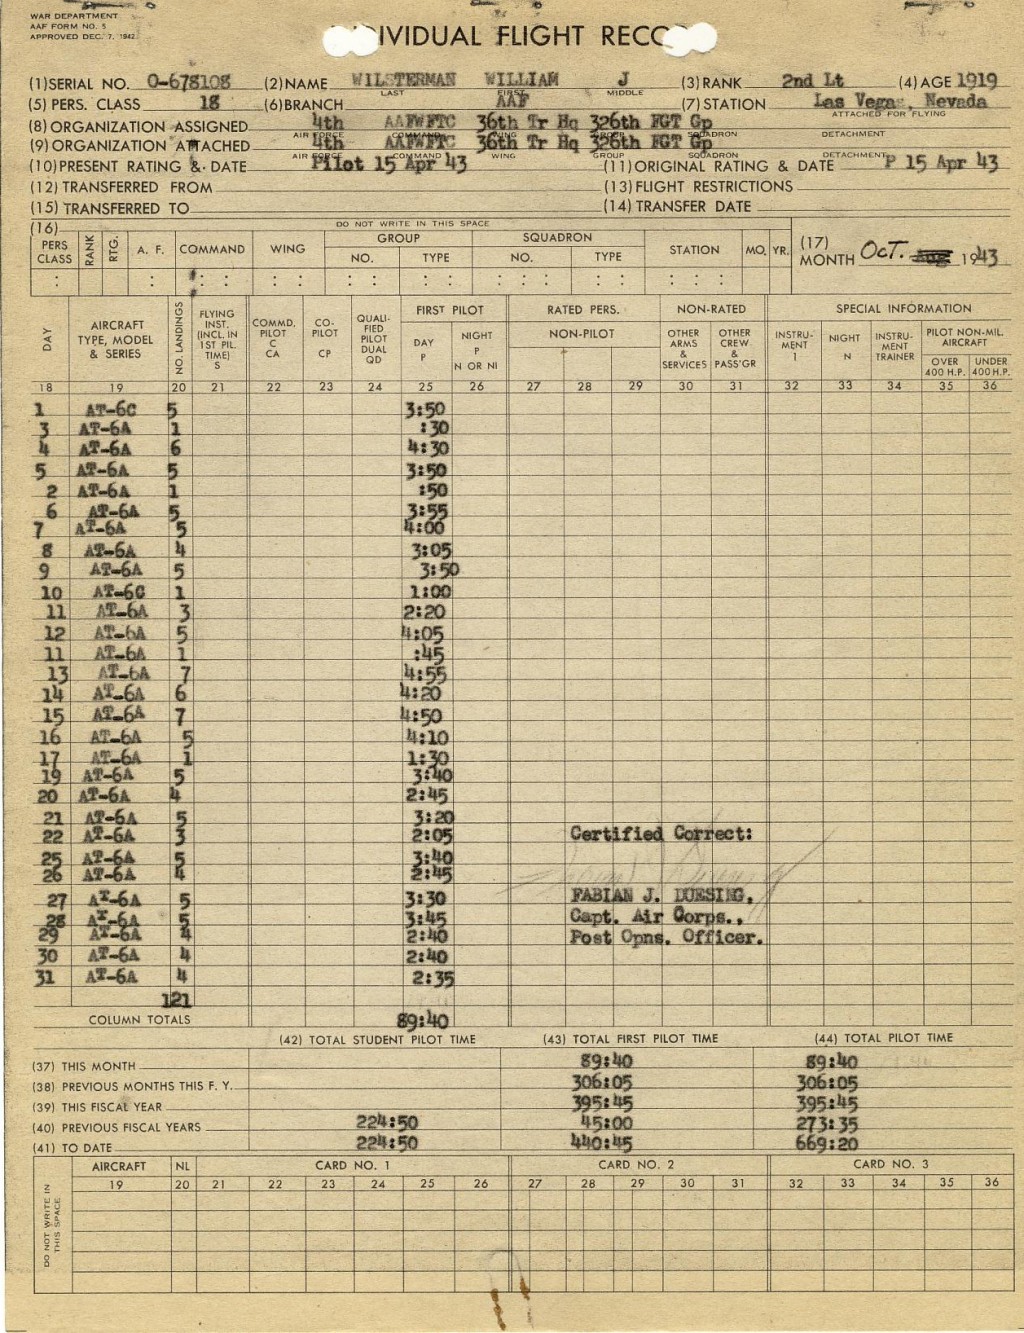 WAR DEPARTMENT
AAF FORM NO. 5
APPROVED DEC. 7, 1942
IVIDUAL FLIGHT REC
(1) SERIAL NO. O-678108 (2) NAME WILSTERMAN WILLIAM J (3) RANK 2nd Lt (4) AGE 1919
LAST FIRST MIDDLE
(5) PERS. CLASS 18 (6) BRANCH AAF (7) STATION Las Vegas, Nevada
ATTACHED FOR FLYING
(8) ORGANIZATION ASSIGNED 4th AAFWFTC 36th Tr Hq 326th FGT Gp
AIR FORCE COMMAND WING GROUP SQUADRON DETACHMENT
(9) ORGANIZATION ATTACHED 4th AAFWFTC 36th Tr Hq 326th FGT Gp
AIR FORCE COMMAND WING GROUP SQUADRON DETACHMENT
(10) PRESENT RATING & DATE Pilot 15 Apr 43 (11) ORIGINAL RATING & DATE P 15 Apr 43
(12) TRANSFERRED FROM (13) FLIGHT RESTRICTIONS
(15) TRANSFERRED TO (14) TRANSFER DATE
(16) DO NOT WRITE IN THIS SPACE
PERS CLASS RANK RTG. A. F. COMMAND WING GROUP NO. TYPE SQUADRON NO. TYPE STATION MO. YR. (17) MONTH OCT. Aug 1943
DAY AIRCRAFT TYPE, MODEL & SERIES NO. LANDINGS FLYING INST. (INCL. IN 1ST PIL. TIME) S COMMD. PILOT C CA CO-PILOT CP QUALI-FIED PILOT DUAL QD FIRST PILOT DAY P NIGHT P N OR NI RATED PERS. NON-PILOT NON-RATED OTHER ARMS & SERVICES OTHER CREW & PASS'GR SPECIAL INFORMATION INSTRU-MENT I NIGHT N INSTRU-MENT TRAINER PILOT NON-MIL. AIRCRAFT OVER 400 H.P. UNDER 400 H.P.
18 19 20 21 22 23 24 25 26 27 28 29 30 31 32 33 34 35 36
1 AT-6C 5 3:50
3 AT-6A 1 :30
4 AT-6A 6 4:30
5 AT-6A 5 3:50
2 AT-6A 1 :50
6 AT-6A 5 3:55
7 AT-6A 5 4:00
8 AT-6A 4 3:05
9 AT-6A 5 3:50
10 AT-6C 1 1:00
11 AT-6A 3 2:20
12 AT-6A 5 4:05
11 AT-6A 1 :45
13 AT-6A 7 4:55
14 AT-6A 6 4:20
15 AT-6A 7 4:50
16 AT-6A 5 4:10
17 AT-6A 1 1:30
19 AT-6A 5 3:40
20 AT-6A 4 2:45
21 AT-6A 5 3:20
22 AT-6A 3 2:05 Certified Correct:
25 AT-6A 5 3:40
26 AT-6A 4 2:45
27 AT-6A 5 3:30 FABIAN J. DUESING,
28 AT-6A 5 3:45 Capt. Air Corps.,
29 AT-6A 4 2:40 Post Opns. Officer.
30 AT-6A 4 2:40
31 AT-6A 4 2:35
121
COLUMN TOTALS 89:40
(42) TOTAL STUDENT PILOT TIME (43) TOTAL FIRST PILOT TIME (44) TOTAL PILOT TIME
(37) THIS MONTH 89:40 89:40
(38) PREVIOUS MONTHS THIS F. Y. 306:05 306:05
(39) THIS FISCAL YEAR 395:45 395:45
(40) PREVIOUS FISCAL YEARS 224:50 45:00 273:35
(41) TO DATE 224:50 440:45 669:20
DO NOT WRITE IN THIS SPACE
AIRCRAFT NL CARD NO. 1 CARD NO. 2 CARD NO. 3
19 20 21 22 23 24 25 26 27 28 29 30 31 32 33 34 35 36